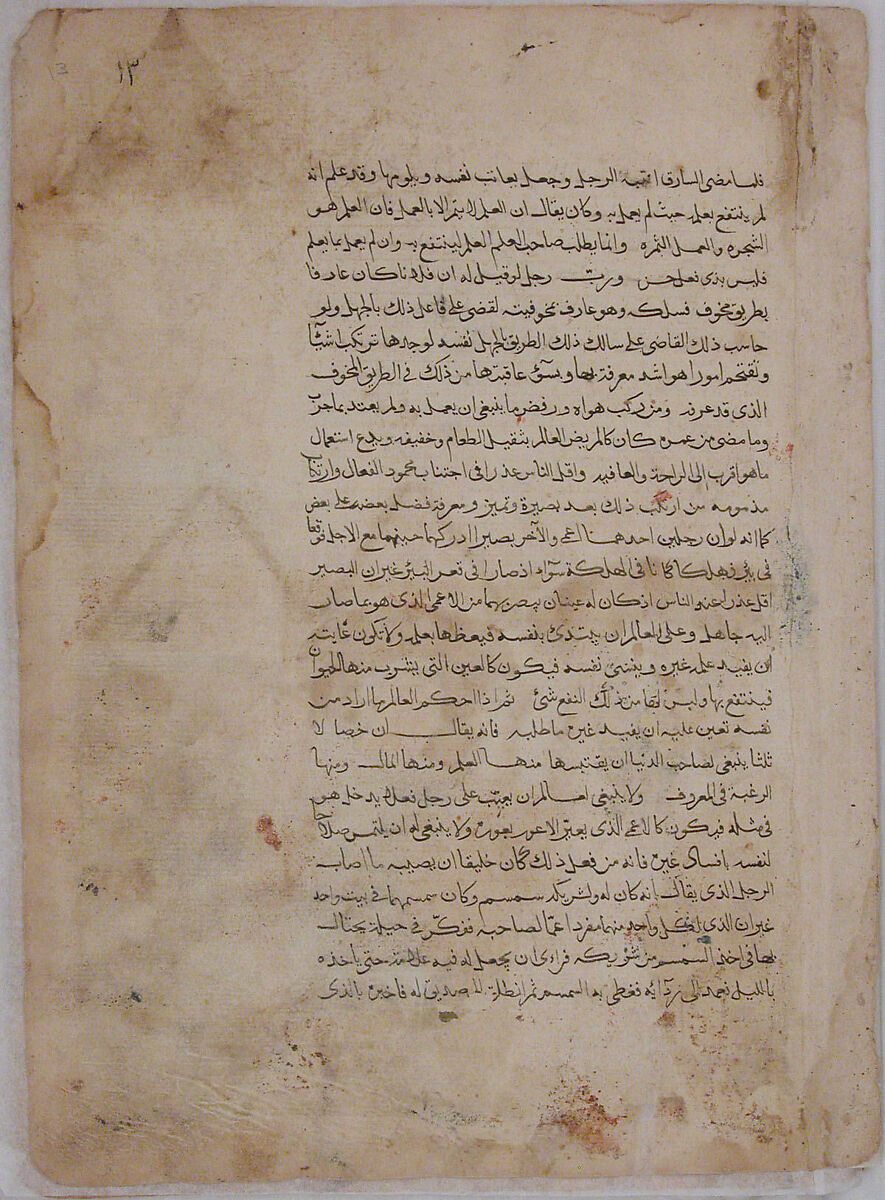 13 ١٣
فلما مضى السارق انتبه الرجل وجعل يعاتب نفسه ويلومها وقد علم انه
لم ينتفع بعلمه حيث لم يعمل به وكان يقال ان العلم لا يتم الا بالعمل فان العلم هو
الشجره والعمل الثمره وانما يطلب صاحب العلم العلم لينتفع به وان لم يعمل بما يعلم
فليس بذى رجل لو قيل له ان فلانا كان عارفا
بطريق مخوف فسلكه وهو عارف بخوفيته لقضى على فاعل ذلك بالجهل ولو
حاسب ذلك القاضى على سالك ذلك الطريق بالجهل نفسه لوجدها ترتكب اشيآ
وتقتحم امورا هو اشد معرفة بها وبسوء عاقبتها من ذلك فى الطريق المخوف
الذى قد عرفه ومن ركب هواه ورفض ما ينبغى ان يعمل به ولم يعتد بما جرب
وما مضى من عمره كان كالمريض العالم بثقيل الطعام وخفيفه ويدع استعمال
ما هو اقرب الى الراحة والعافيه واقل الناس عذرا فى اجتناب محمود الفعال وارتكاب
مذمومه من ارتكب ذلك بعد بصيرة وتميز ومعرفة فضل بعضه على بعض
كما انه لو ان رجلين احدهما اعمى والآخر بصيرا ادركهما حينهما مع الاجل فوقعا
فى بئر فهلكا كانا فى الهلكة سوآء اذ صارا فى قعر البئر غير ان البصير
اقل عذرا عند الناس اذ كان له عينان يبصر بهما من الاعمى الذى هو بما صار
اليه جاهل وعلى العالم ان يبتدى بنفسه فيعظها بعلمه ولا تكون غايته
ان يفيد علمه غيره وينسى نفسه فيكون كالعين التى يشرب منها الحيوان
فينتفع بها وليس لها من ذلك النفع شئ ثم اذا احكم العالم بها اراد من
نفسه تعين عليه ان يفيد غيره ما طلبه فانه يقال ان خصالا
ثلثا ينبغى لصاحب الدنيا ان يقتبسها منها العلم ومنها المال ومنها
الرغبة فى المعروف ولا ينبغى لعالم ان يعيب على رجل فعلا يدخل هو
فى مثله فيكون كالاعمى الذى يعير الاعور بعوره ولا ينبغى له ان يلتمس صلاحا
لنفسه بافساد غيره فانه من فعل ذلك كان خليقا ان يصيبه ما اصاب
الرجل الذى يقال انه كان له ولشريكه سمسم وكان سمسمهما فى بيت واحد
غير ان الذى لكل واحد منهما مفردا عما لصاحبه ففكر فى حيلة يحتال
بها فى اخذ السمسم من شريكه فراى ان يجعل له فيه علامة حتى ياخذه
بالليل فعمد الى ردآئه فغطى به السمسم ثم انطلق الى صديق له فاخبره بالذى